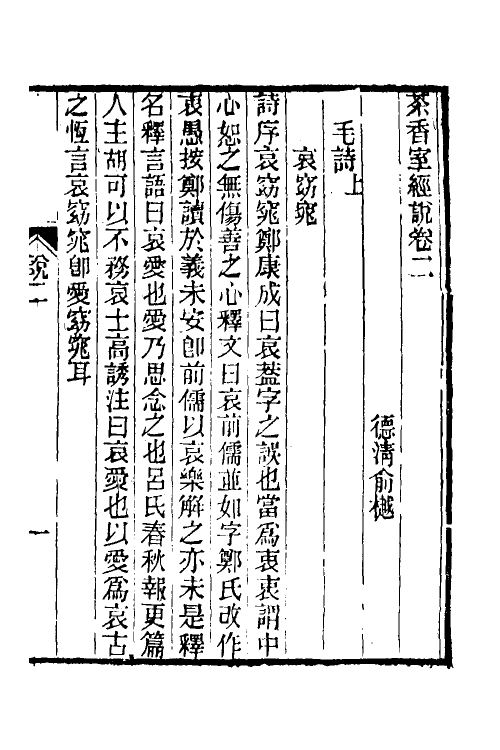 茶香室經說卷二
德清俞樾
毛詩上
哀窈窕
詩序哀窈窕鄭康成曰哀蓋字之誤也當爲衷衷謂中
心恕之無傷善之心釋文曰哀前儒並如字鄭氏改作
衷愚按鄭讀於義未安卽前儒以哀樂解之亦未是釋
名釋言語曰哀愛也愛乃思念之也呂氏春秋報更篇
人主胡可以不務哀士高誘注曰哀愛也以愛爲哀古
之恆言哀窈窕卽愛窈窕耳
說二
一